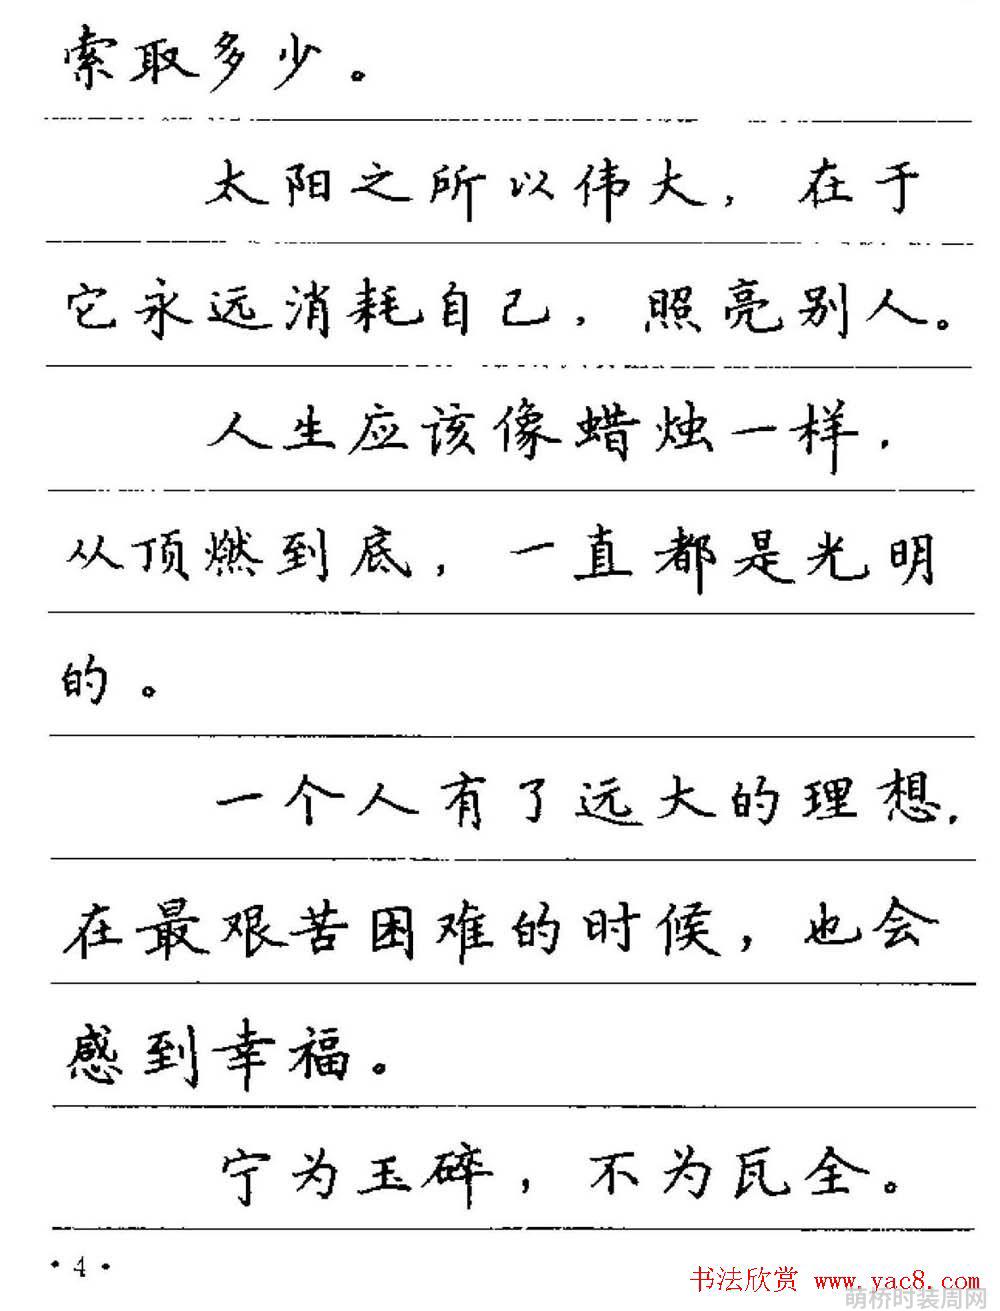 索取多少。
太阳之所以伟大，在于
它永远消耗自己，照亮别人。
人生应该像蜡烛一样，
从顶燃到底，一直都是光明
的。
一个人有了远大的理想，
在最艰苦困难的时候，也会
感到幸福。
宁为玉碎，不为瓦全。
·4·
书法欣赏 www.yac8.com
萌桥时装周网